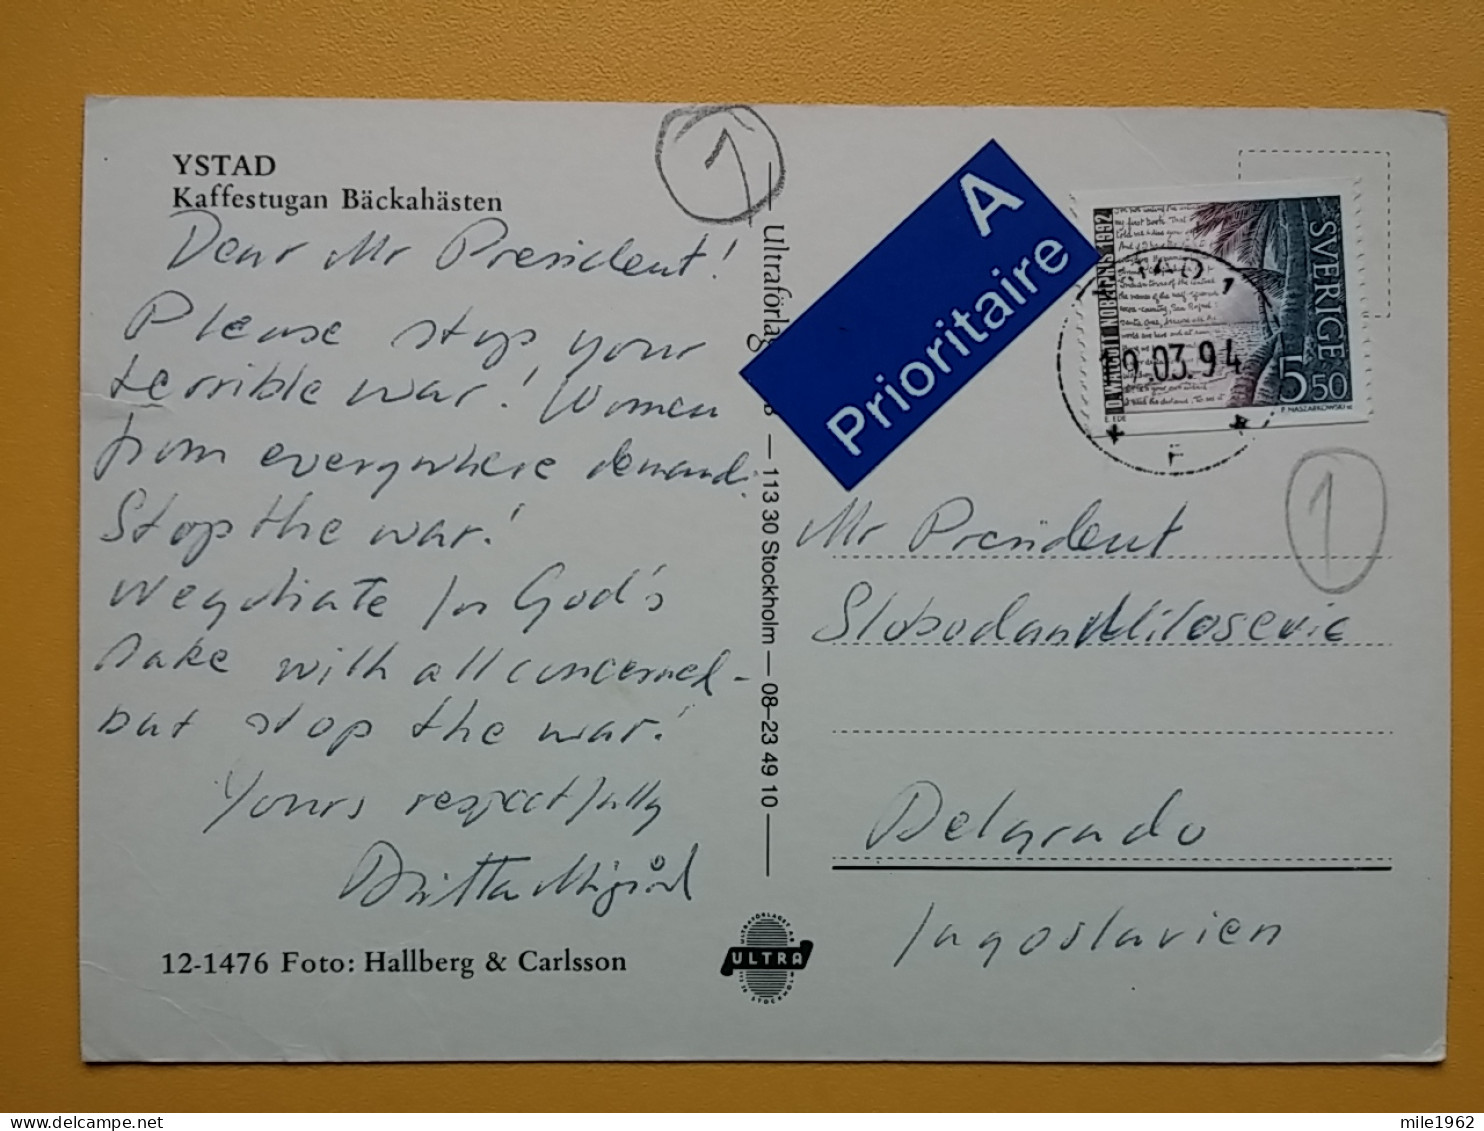 YSTAD
Kaffestugan Bäckahästen
Dear Mr President!
Please stop your
terrible war! Women
from everywhere demand.
Stop the war!
Negotiate for God's
sake with all concerned -
but stop the war!
Yours respectfully
Britta
12-1476 Foto: Hallberg & Carlsson
1
Ultraförlag — 113 30 Stockholm — 08-23 49 10
ULTRA
A
Prioritaire
D. WALCOTT NOBELPRIS 1992
SVERIGE
5 50
19.03.94
F
1
Mr President
Slobodan Milosevic
Belgrado
Jugoslavien
mile1962